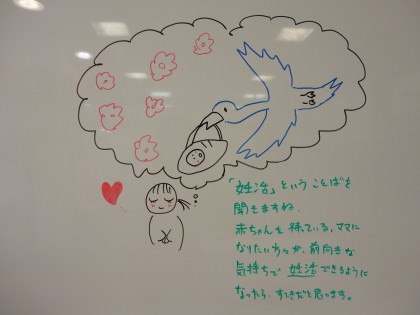 「妊活」ということばを
聞きますね。
赤ちゃんを待っている、ママに
なりたい方々が、前向きな
気持ちで 妊活できるように
なったら、すてきだと思います。